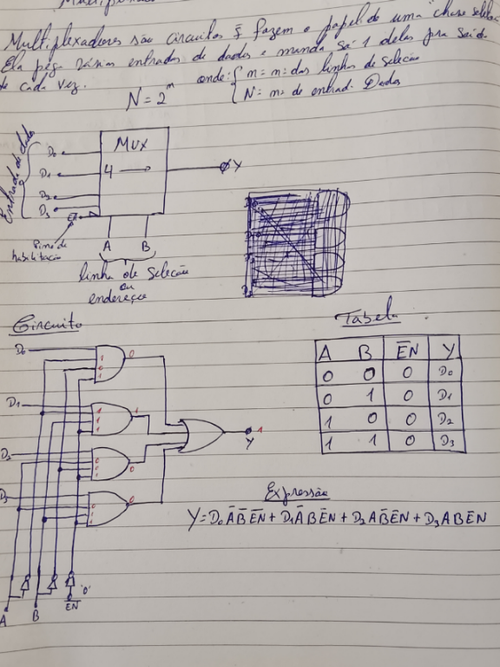 Multiplexadores são circuitos q fazem o papel de uma chave
Ela pega várias entradas de dados e manda só 1 delas pra saída
de cada vez.
onde: { m = nº das linhas de seleção
N = 2^m
{ N = nº de entrad. Dados
MUX
4 →
Entrada de dados
D0
D1
D2
D3
Y
Pino de
habilitação
A B
linha de seleção
ou
endereço
Circuito
Tabela
D0
D1
D2
D3
Y
1
0
1
0
0
A B E̅N̅ Y
0 0 0 D0
0 1 0 D1
1 0 0 D2
1 1 0 D3
Expressão
Y = D0 A̅ B̅ E̅N̅ + D1 A̅ B E̅N̅ + D2 A B̅ E̅N̅ + D3 A B E̅N̅
A B E̅N̅ '0'